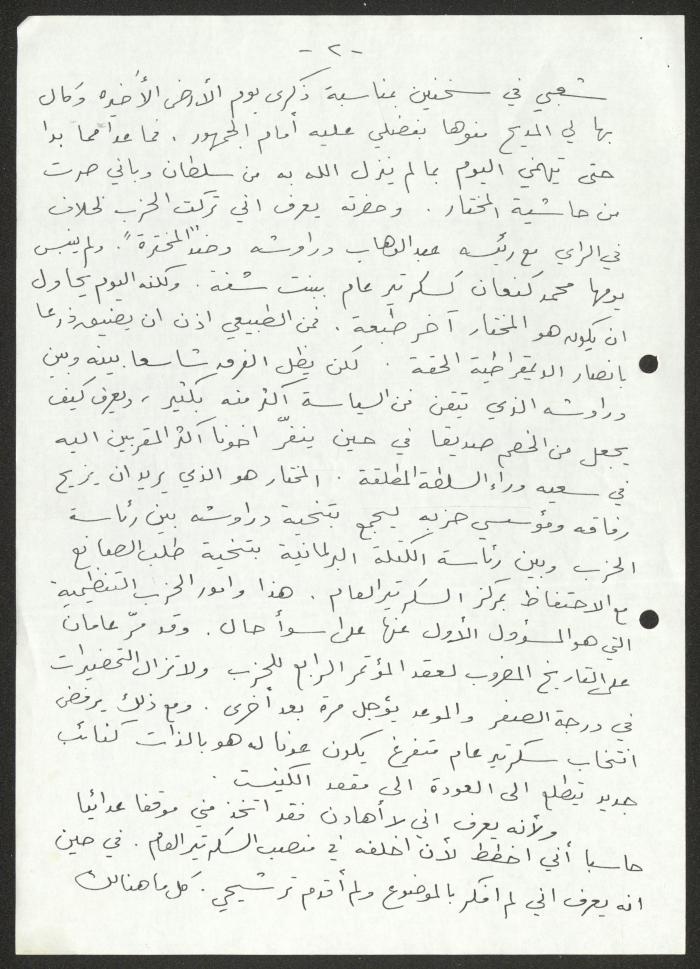 - ٢ -
شعبي في سخنين بمناسبة ذكرى يوم الأرض الأخيرة وكال
بها لي المديح منوها بفضلي عليه أمام الجمهور . فما عدا مما بدا
حتى يتهمني اليوم بما لم ينزل الله به من سلطان وباني صرت
من حاشية المختار . وحضرته يعرف اني تركت الحزب لخلاف
في الراي مع رئيسه عبد الوهاب دراوشه وضد "المخترة" . ولم ينبس
يومها محمد كنعان كسكرتير عام ببنت شفة . ولكنه اليوم يحاول
ان يكون هو المختار آخر طبعة . فمن الطبيعي اذن ان يضيق ذرعا
بانصار الديمقراطية الحقة . لكن يظل الفرق شاسعا بينه وبين
دراوشه الذي يتقن فن السياسة أكثر منه بكثير ، ويعرف كيف
يجعل من الخصم صديقا في حين ينفّر اخونا أكثر المقربين اليه
في سعيه وراء السلطة المطلقة . المختار هو الذي يريد ان يزيح
رفاقه ومؤسسي حزبه ليجمع بتنحية دراوشه بين رئاسة
الحزب وبين رئاسة الكتلة البرلمانية بتنحية طلب الصانع
مع الاحتفاظ بمركز السكرتير العام . هذا وامور الحزب التنظيمية
التي هو المسؤول الأول عنها على اسوأ حال . وقد مرّ عامان
على التاريخ المضروب لعقد المؤتمر الرابع للحزب ولا تزال التحضيرات
في درجة الصفر والموعد يؤجل مرة بعد أخرى . ومع ذلك يرفض
انتخاب سكرتير عام متفرغ يكون عونا له هو بالذات كنائب
جديد يتطلع الى العودة الى مقعد الكنيست .
ولأنه يعرف اني لا أهادن فقد اتخذ مني موقفا عدائيا
حاسبا أني اخطط لأن اخلفه في منصب السكرتير العام . في حين
انه يعرف اني لم افكر بالموضوع ولم أقدم ترشيحي . كل ما هنالك